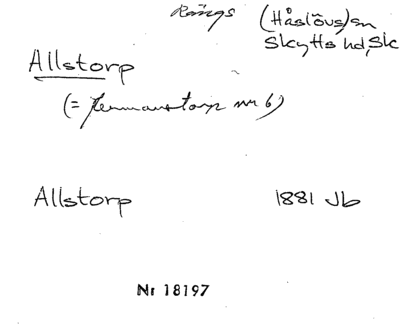 Rängs (Håslövs) sn
Skytts hd, Sk
Allstorp
(= Hermanstorp nr 6)
Allstorp 1881 Jb
Nr 18197